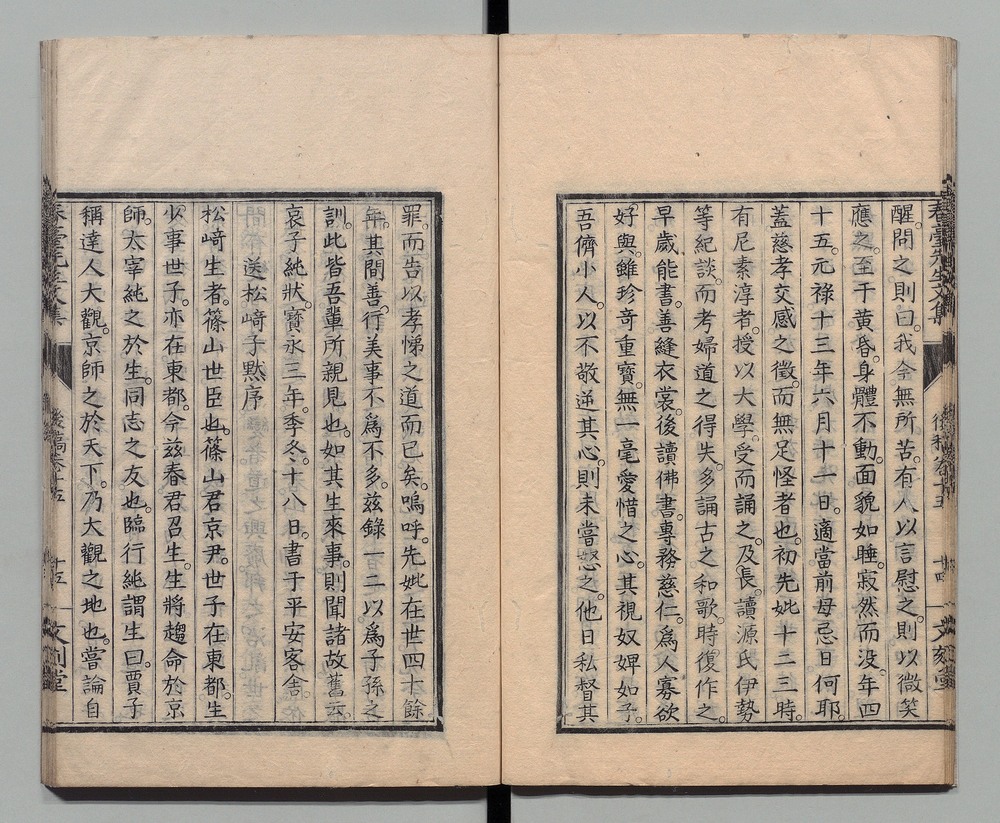 醒。問之則曰。我今無所苦。有人以言慰之。則以微笑
應之。至于黄昏。身體不動。面貌如睡。寂然而没。年四
十五。元禄十三年六月十一日。適當前母忌日。何耶。
蓋慈孝交感之徴。而無足怪者也。初先妣十二三時。
有尼素淳者。授以大學。受而誦之。及長。讀源氏伊勢
等紀談。而考婦道之得失。多誦古之和歌。時復作之。
早歳能書。善縫衣裳。後讀佛書。專務慈仁。爲人寡欲
好與。雖珍奇重寳。無一毫愛惜之心。其視奴婢如子。
吾儕小人。以不敬逆其心。則未嘗怒之。他日私督其
罪。而告以孝悌之道而已矣。嗚呼。先妣在世四十餘
年。其間善行美事不爲不多。茲錄一二以爲子孫之
訓。此皆吾輩所親見也。如其生來事。則聞諸故舊云。
哀子純狀。寳永三年季冬。十八日。書于平安客舎。
送松﨑子黙序
松﨑生者。篠山世臣也。篠山君京尹。世子在東都。生
少事世子。亦在東都。今茲春君召生。生將趨命於京
師。太宰純之於生。同志之友也。臨行純謂生曰。賈子
稱達人大觀。京師之於天下。乃大觀之地也。嘗論自
春臺先生文集
後稿卷十五
十五
文刻堂